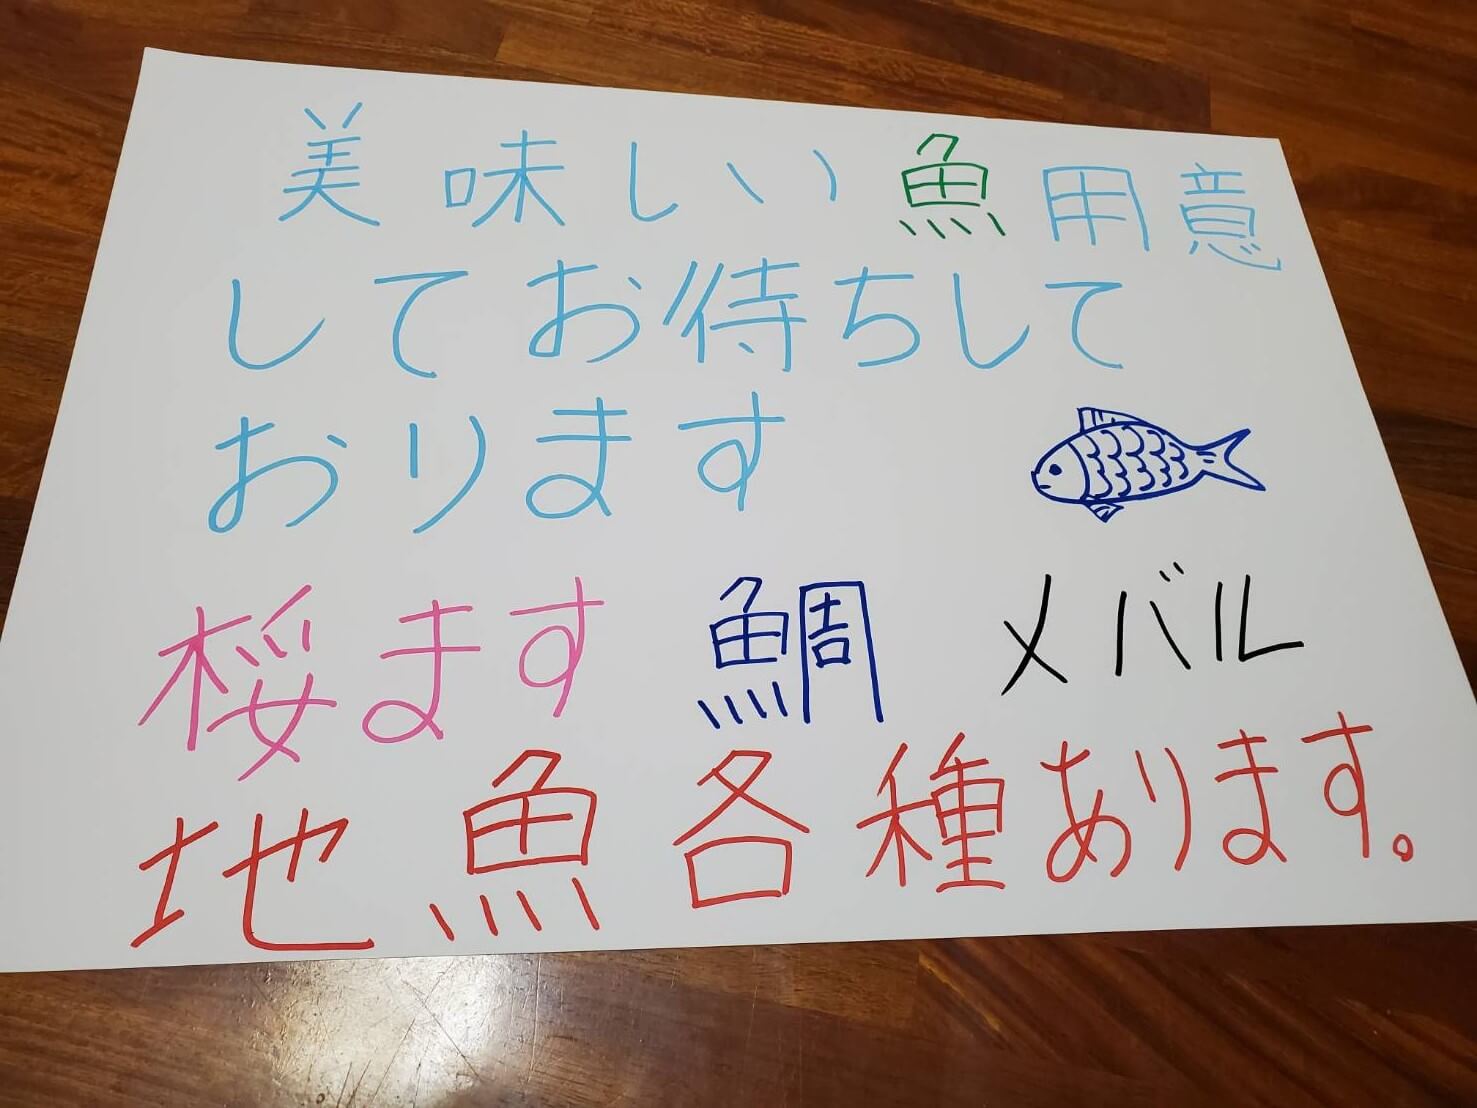 美味しい魚用意
してお待ちして
おります
桜ます 鯛 メバル
地魚各種あります。